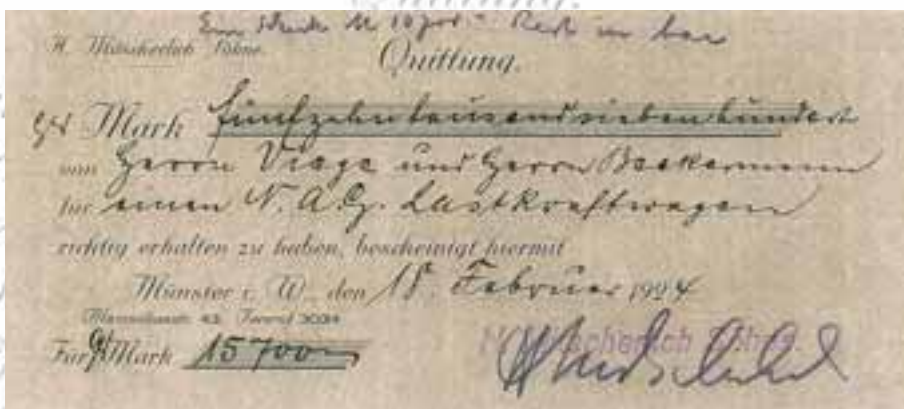 Quittung.
Ein Scheck M 10 000.- Rest in bar
H. Mitscherlich Söhne
Quittung.
Mark fünfzehntausendsiebenhundert
von Herrn Viege und Herrn Beckermann
für einen N.A.G. Lastkraftwagen
richtig erhalten zu haben, bescheinigt hiermit
Münster i. W., den 18. Februar 1924
Für Mark 15700